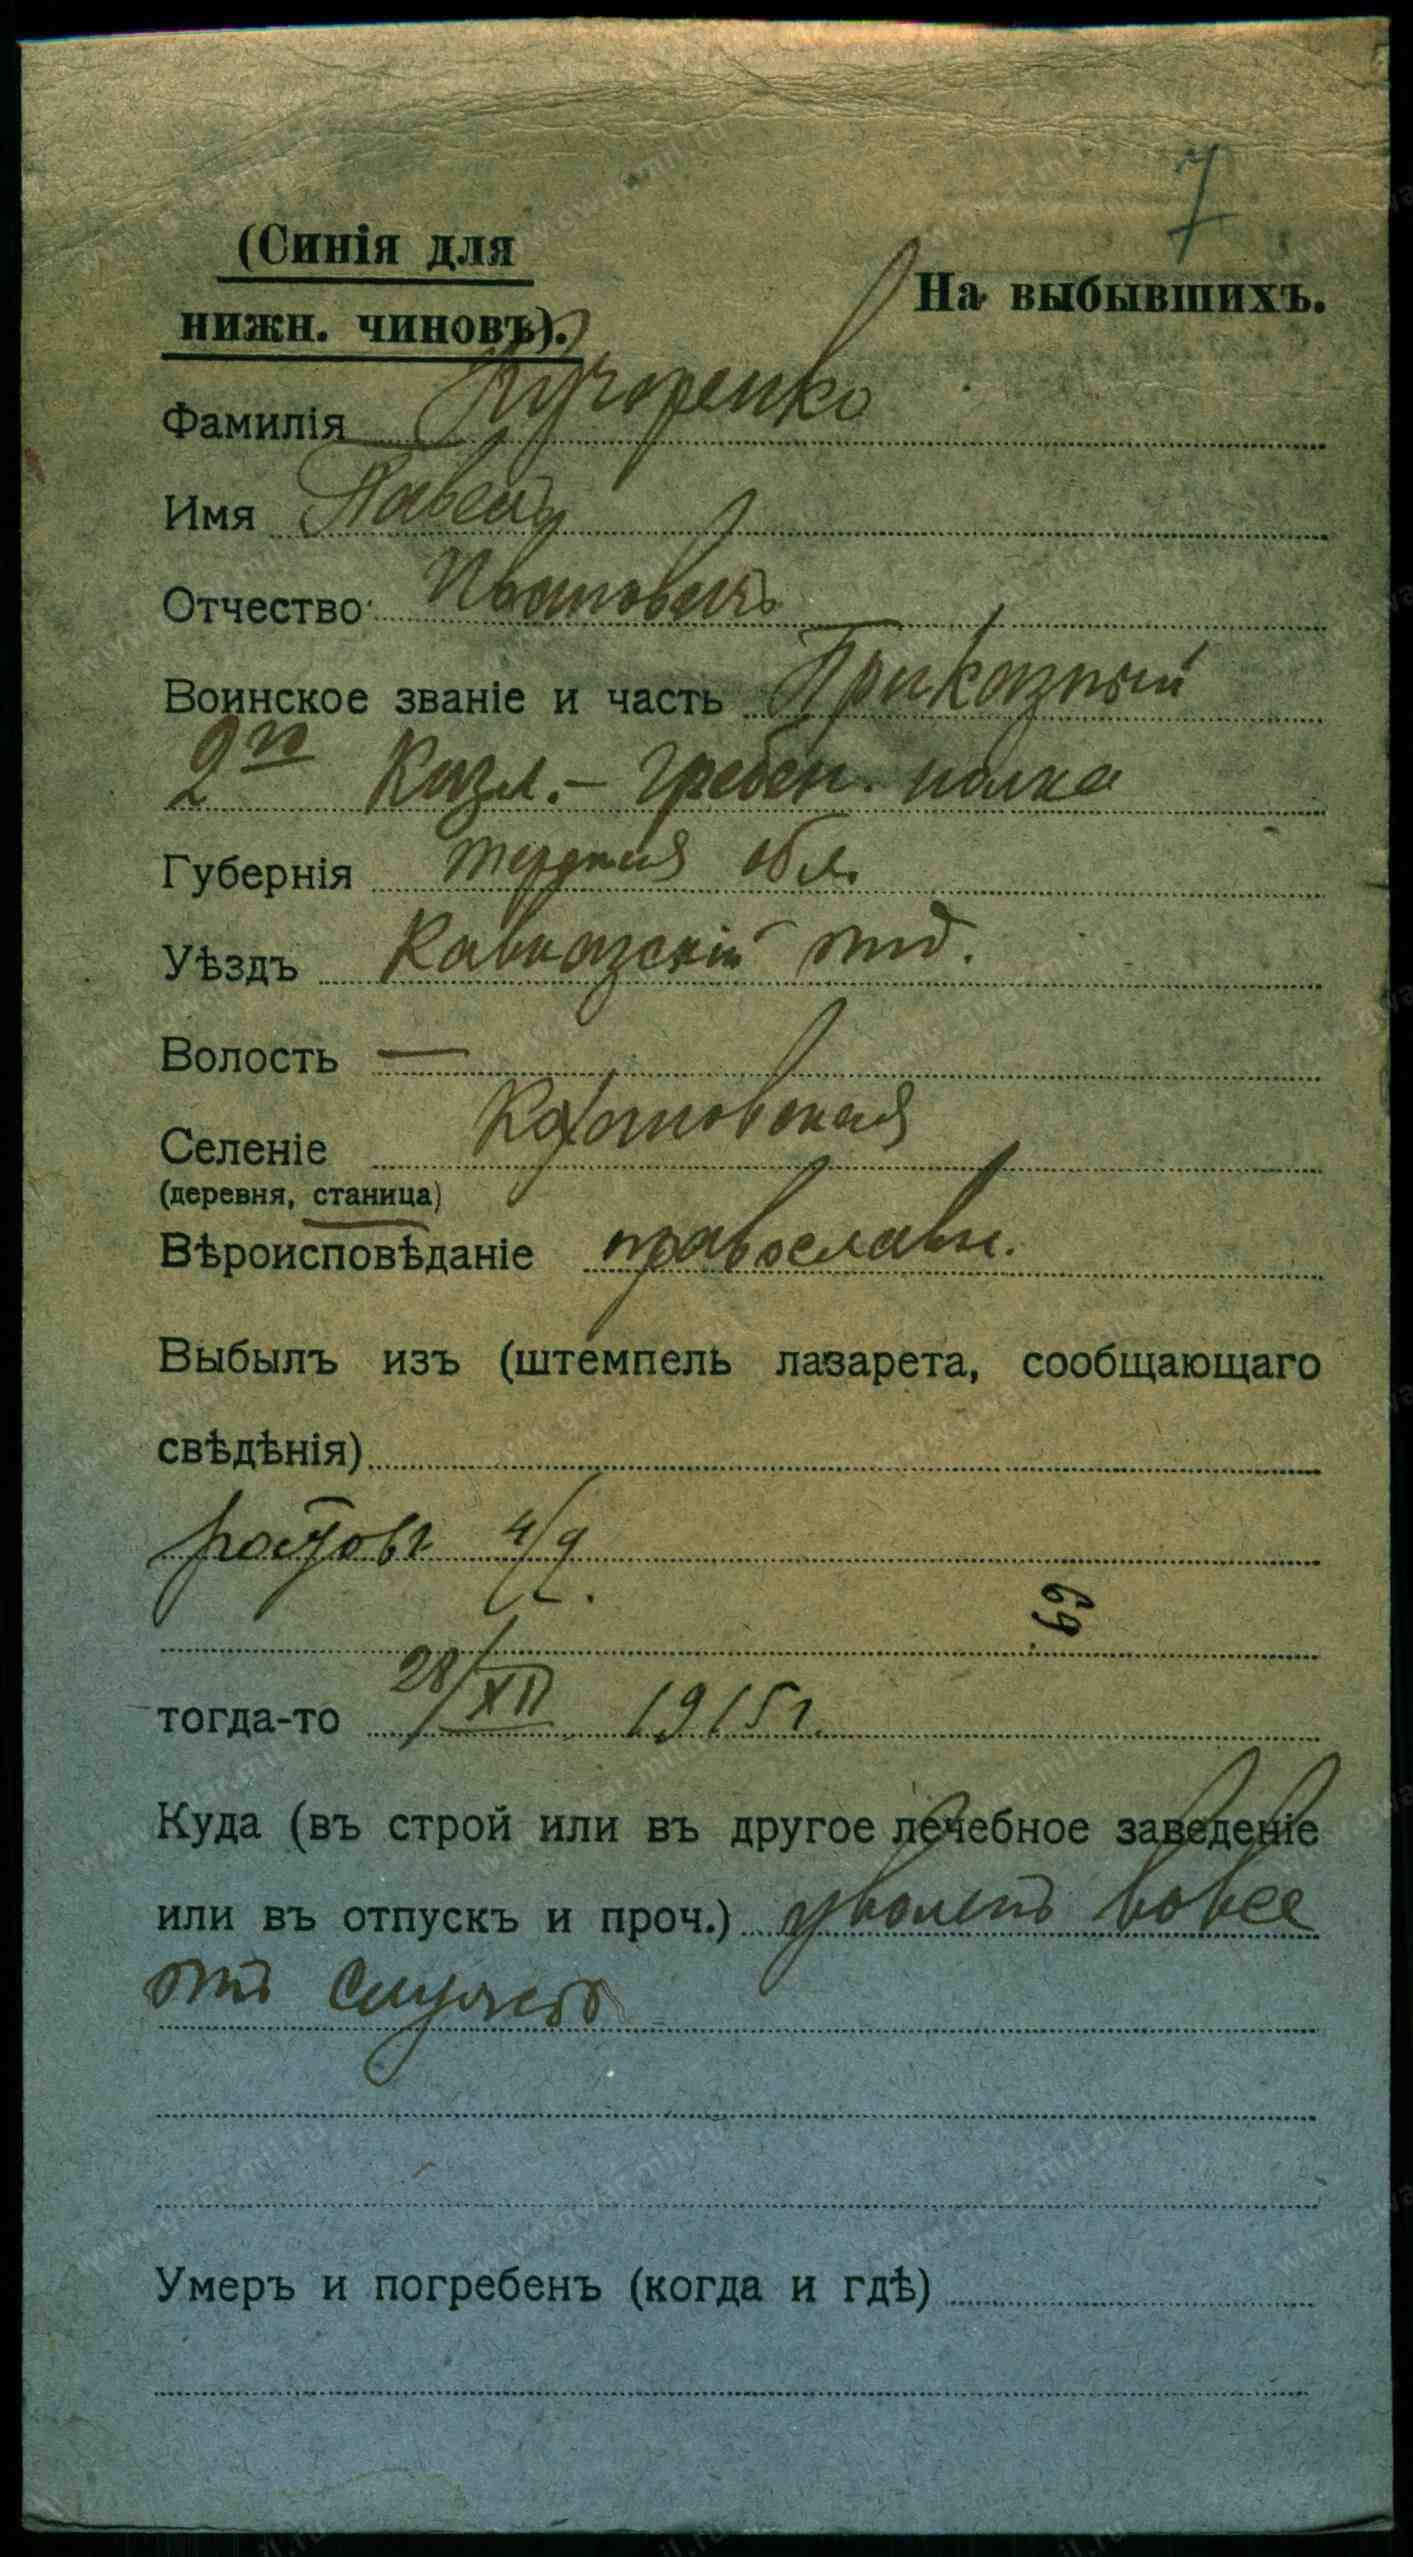 7
(Синія для
нижн. чиновъ).
На выбывшихъ.
Фамилія Кучоренко
Имя Павелъ
Отчество Ивановичъ
Воинское званіе и часть Приказный
2го Кизл.-Гребен. полка
Губернія Терская обл.
Уѣздъ Кавказскій отд.
Волость —
Селеніе Кахановская
(деревня, станица)
Вѣроисповѣданіе православн.
Выбылъ изъ (штемпель лазарета, сообщающаго
свѣдѣнія)
Ростовъ н/Д.
69
тогда-то 28/XII 1915 г.
Куда (въ строй или въ другое лечебное заведеніе
или въ отпускъ и проч.) уволенъ вовсе
отъ службы
Умеръ и погребенъ (когда и гдѣ)